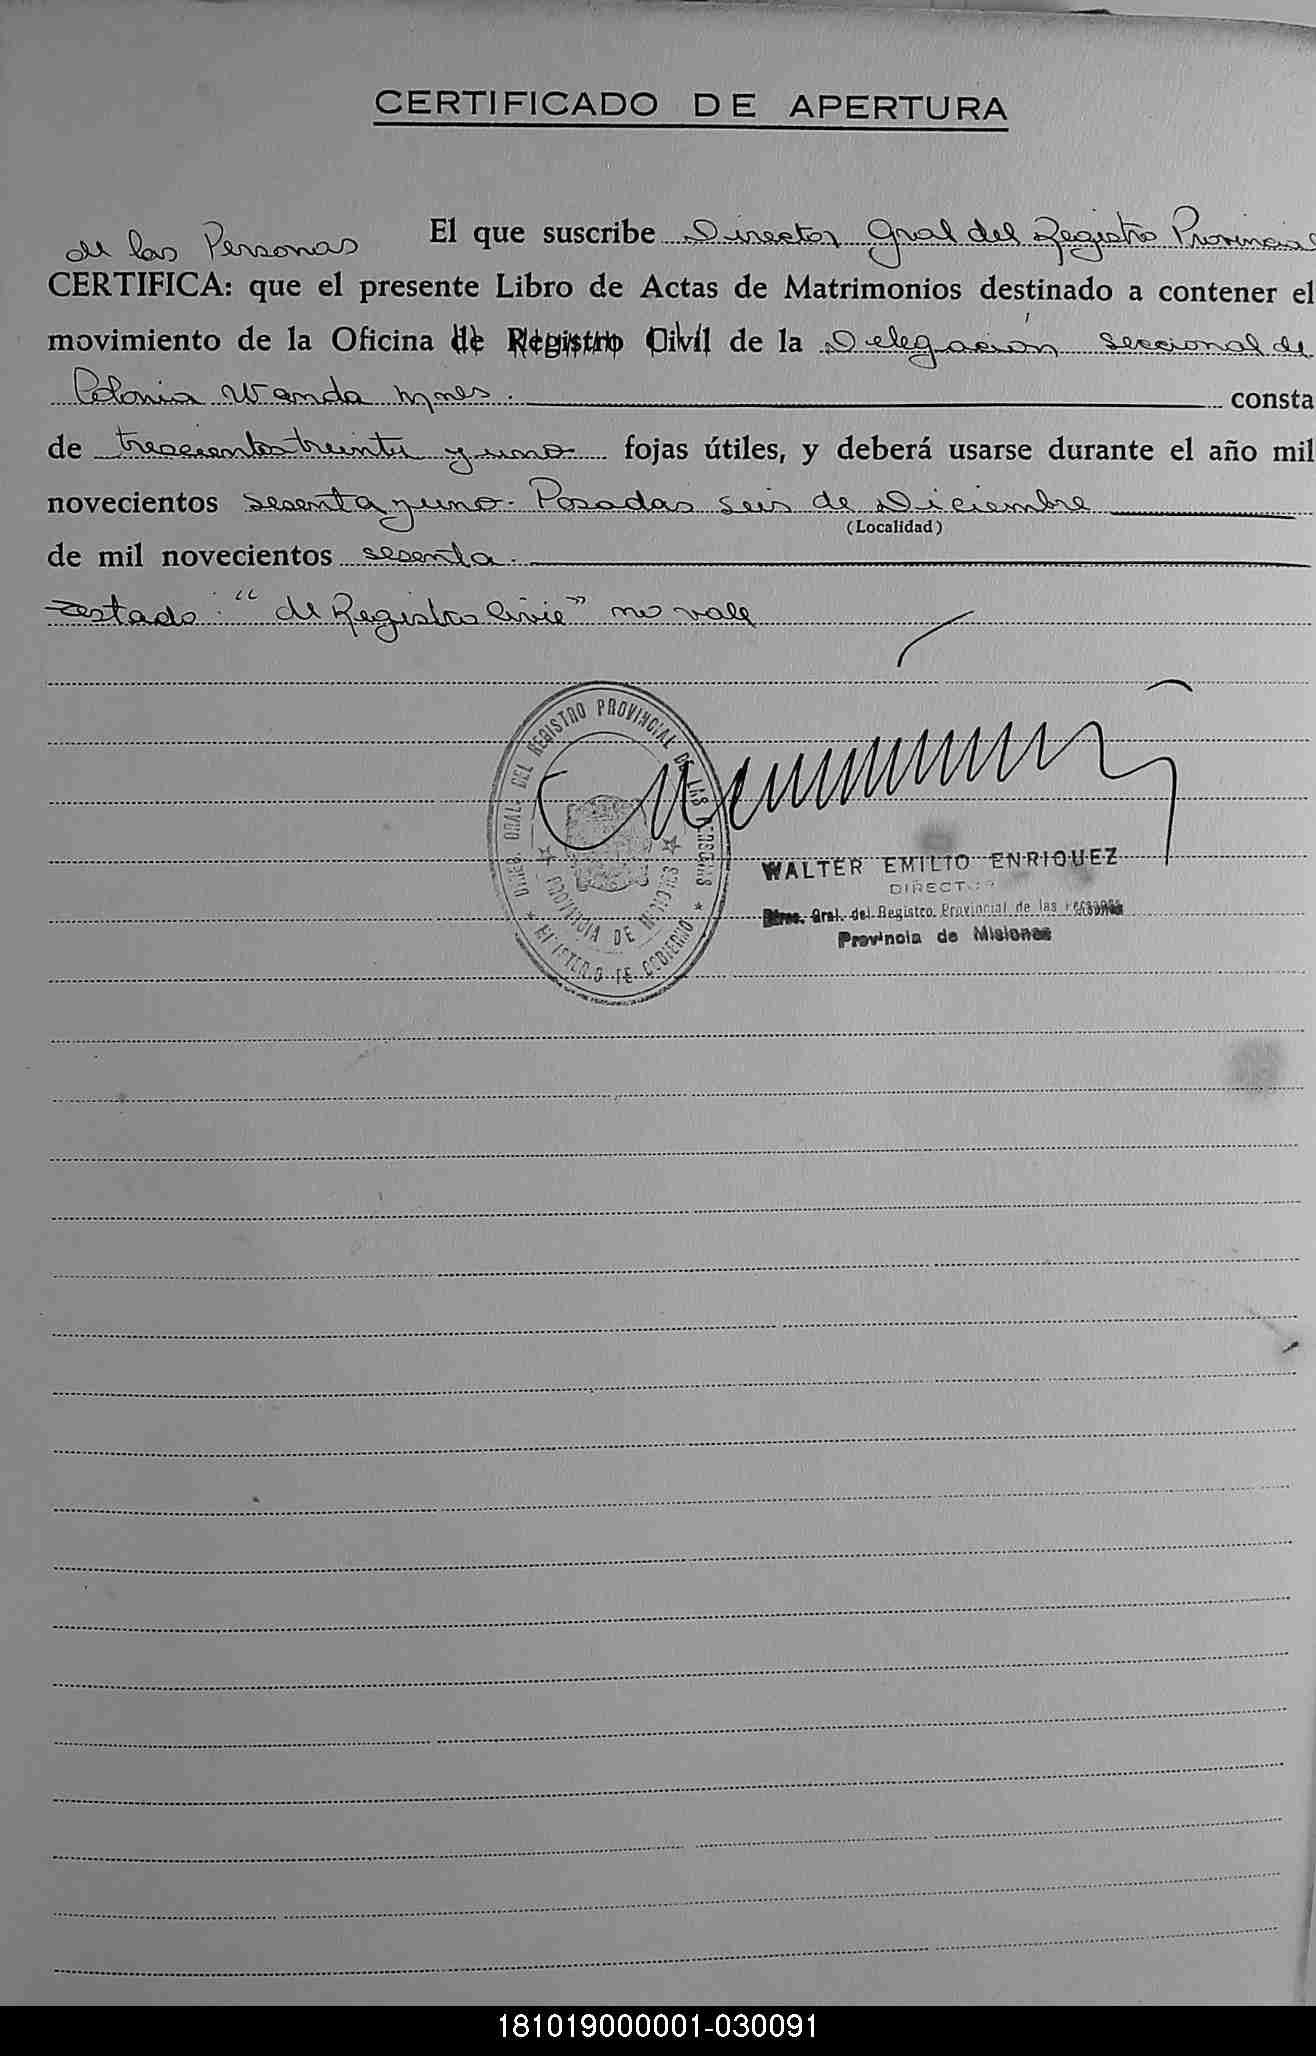 CERTIFICADO DE APERTURA
El que suscribe Director Gral del Registro Provincial
de las Personas
CERTIFICA: que el presente Libro de Actas de Matrimonios destinado a contener el
movimiento de la Oficina de Registro Civil de la Delegación seccional de
Colonia Wanda Mnes. consta
de trescientos treinta y uno fojas útiles, y deberá usarse durante el año mil
novecientos sesenta y uno. Posadas seis de Diciembre
(Localidad)
de mil novecientos sesenta.
Testado: "de Registro Civil" no vale
DIREC. GRAL. DEL REGISTRO PROVINCIAL DE LAS PERSONAS
PROVINCIA DE MISIONES
MINISTERIO DE GOBIERNO
WALTER EMILIO ENRIQUEZ
DIRECTOR
Direc. Gral. del Registro Provincial de las Personas
Provincia de Misiones
181019000001-030091